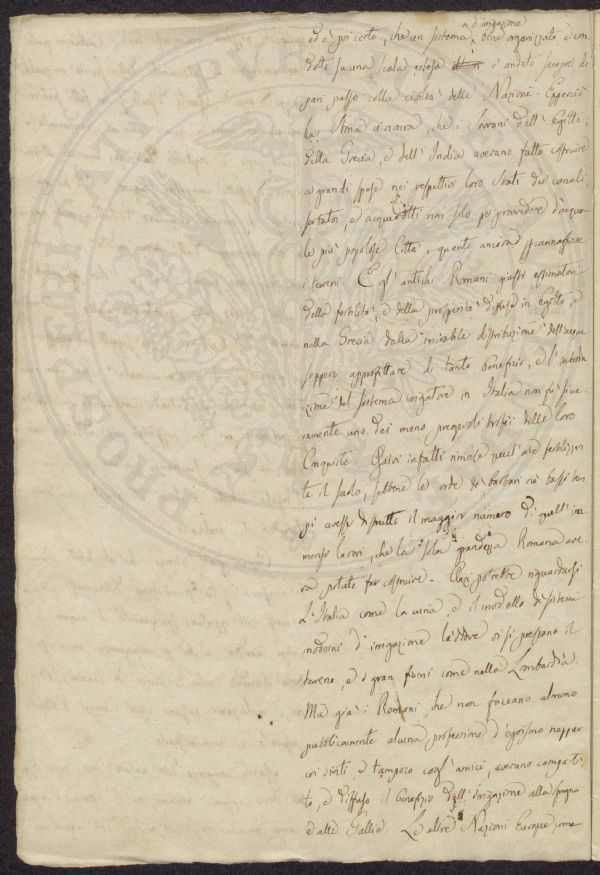 d'irrigazione
ed è poi certo, che un sistema, bene organizzato e con
dotto su una scala estesa è andato sempre di
pari passo colla civiltà delle Nazioni. Eppercio
la Storia ci narra, che i Sovrani dell' Egitto,
della Grecia, e dell' India averano fatto costruire
a grandi spese nei respettivi loro Stati dei canali
serbatoi, ed acquidotti non solo per provvedere d'acqua
le più popolose Città, quanto ancora per annaffiare
i terreni. E gl' antichi Romani giusti estimatori
della fertilità, e della prosperità diffusa in Egitto, e
nella Grecia dalla mirabile distribuzione dell'acqua
seppero approfittare di tanto beneficio, e l' introdu
zione del sistema irrigatore in Italia non fù sicu-
ramente uno dei meno pregevoli trofei delle loro
Conquiste. Quivi infatti rimase quell' arte fertilizzan
te il suolo, sebbene le orde di barbari ne' bassi tem
pi avesser distrutto il maggior numero di quell' im
mensi lavori, che la sola grandezza Romana ave
va potuto far costruire. Anzi potrebbe riguardarsi
L' Italia come la cuna, e il modello di sistemi
moderni d' irrigazione laddove or si prestano il
terreno, e i gran fiumi come nella Lombardia.
Ma già i Romani, che non faceano almeno
pubblicamente alcuna professione d' egoismo neppur
coi vinti, e tampoco cogl' amici, averano comparti
to, e diffuso il benefizio dell' irrigazione alla Spagna
e alle Gallie. Le altre Nazioni Europee come
PROSPERITATI PUBLICAE